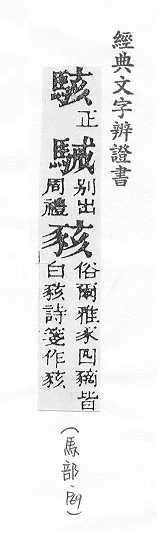 經典文字辨證書
駭正駴別出
周禮
豥俗爾雅豕四豴皆
白豥詩箋作豥
(馬部·